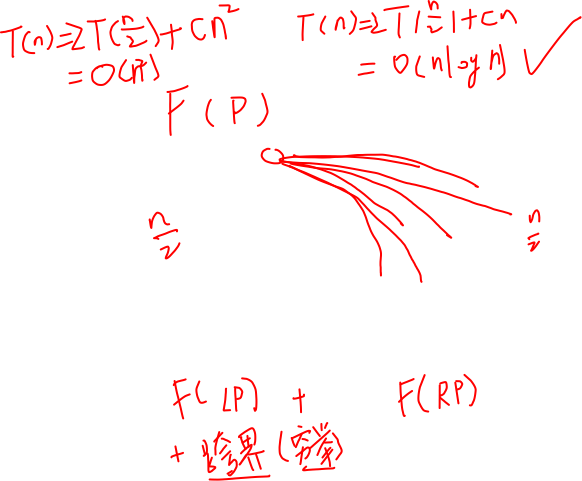 T(n)=2T(n/2)+cn²
=O(n²)
T(n)=2T(n/2)+cn
=O(nlogn) ✓
F(P)
n/2
n/2
F(LP) + F(RP)
+ 跨界(穷举)